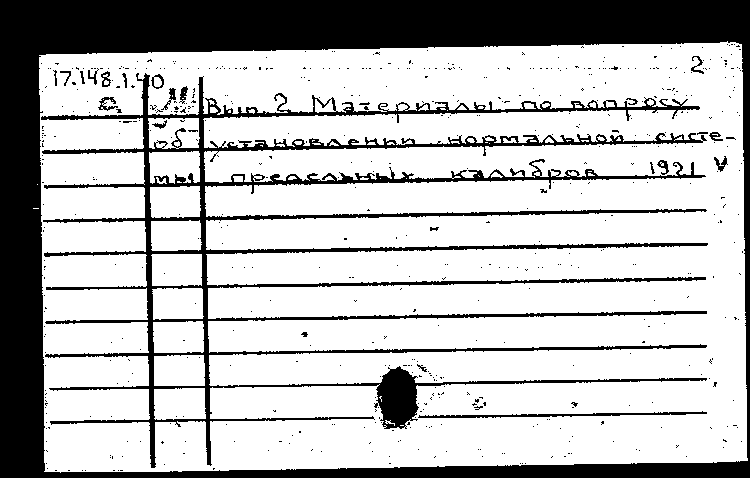 2
17.148.1.40
Вып. 2 Материалы по вопросу
об установлении нормальной систе-
мы предельных калибров 1921 V